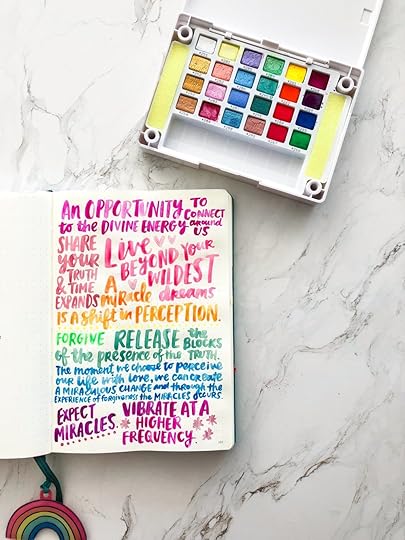 AN OPPORTUNITY TO CONNECT
to the DIVINE ENERGY around US
SHARE YOUR TRUTH & TIME EXPANDS
LIVE BEYOND YOUR WILDEST dreams
A miracle
IS A shift in PERCEPTION.
FORGIVE RELEASE the BLOCKS
of the presence of the TRUTH.
The moment we choose to perceive
our life with love, we can create
A MIRACULOUS CHANGE and through the
EXPERIENCE of forgiveness the MIRACLES OCCURS.
EXPECT MIRACLES.
VIBRATE AT A HIGHER FREQUENCY.